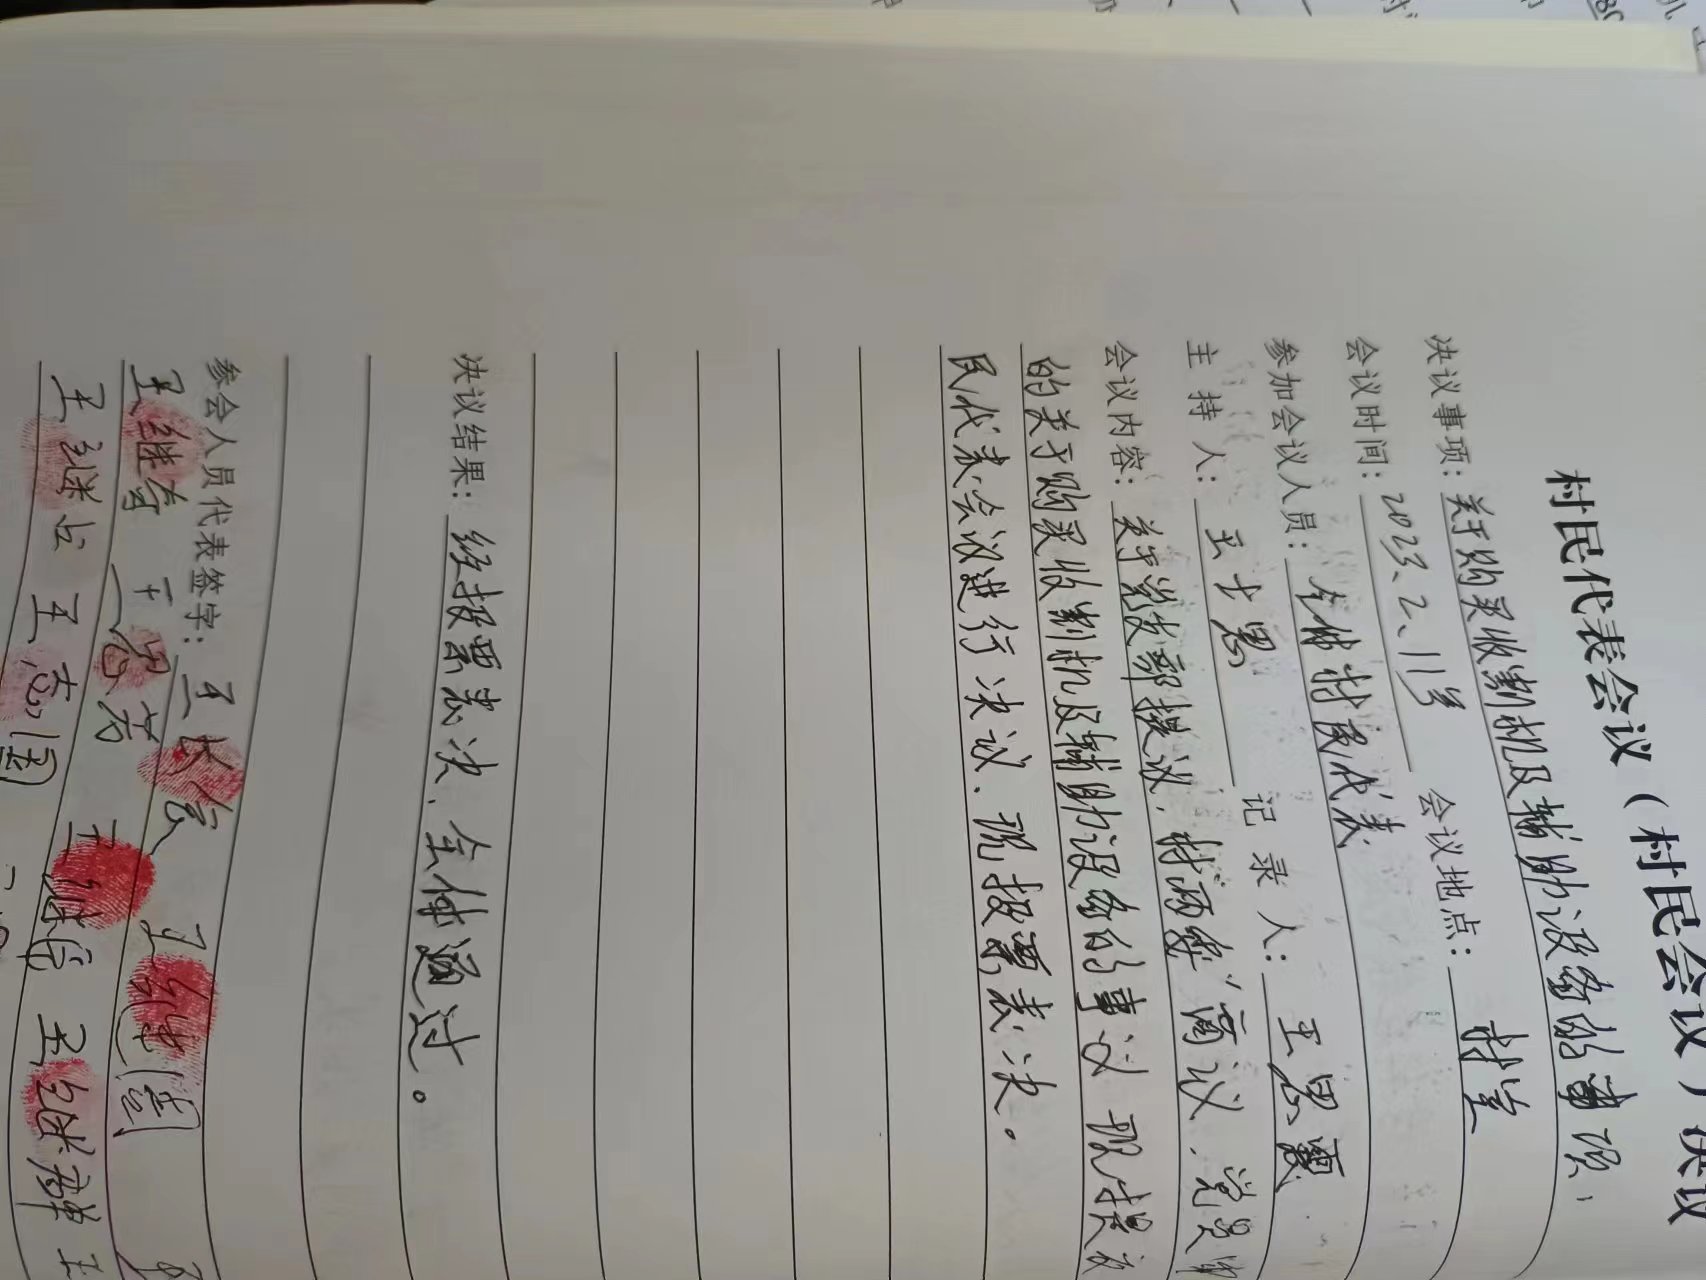 村民代表会议（村民会议）决议
决议事项：关于购买收割机及辅助设备的事项，
会议时间：2023、2、11号 会议地点：村室
参加会议人员：全体村民代表
主 持 人：王士恩 记 录 人：王思震
会议内容：关于党支部提议，村"两委"商议，党员
的关于购买收割机及辅助设备的事议 现提
民代表会议进行决议、现投票表决。
决议结果：经投票表决、全体通过。
参会人员代表签字：王长会 王继周
王继奇 王思芳 王继 王继群
王继占 王志国